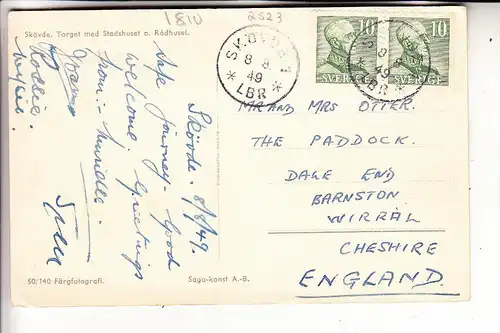 1810
2523
Skövde. Torget med Stadshuset o. Rådhuset.
SKÖVDE 1
8 8
49
* LBR *
10
10
SVERIGE
SVERIGE
8 8
49
LBR *
Skövde. 8/8/49.
Safe journey - Good
welcome. Greetings
from:-
MR AND MRS OTTER.
THE PADDOCK.
DALE END
BARNSTON
WIRRAL
CHESHIRE
ENGLAND.
50/140 Färgfotografi.
Sago-konst A.-B.